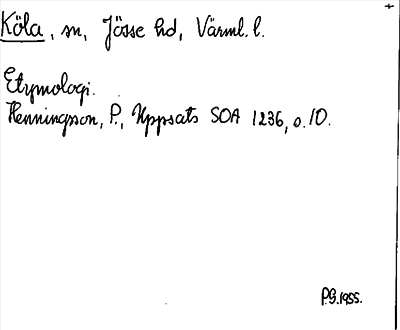 Köla, sn, Jösse hd, Värml. l.
Etymologi.
Henningsson, P., Uppsats SOA 1236, s. 10.
P.G. 1955.